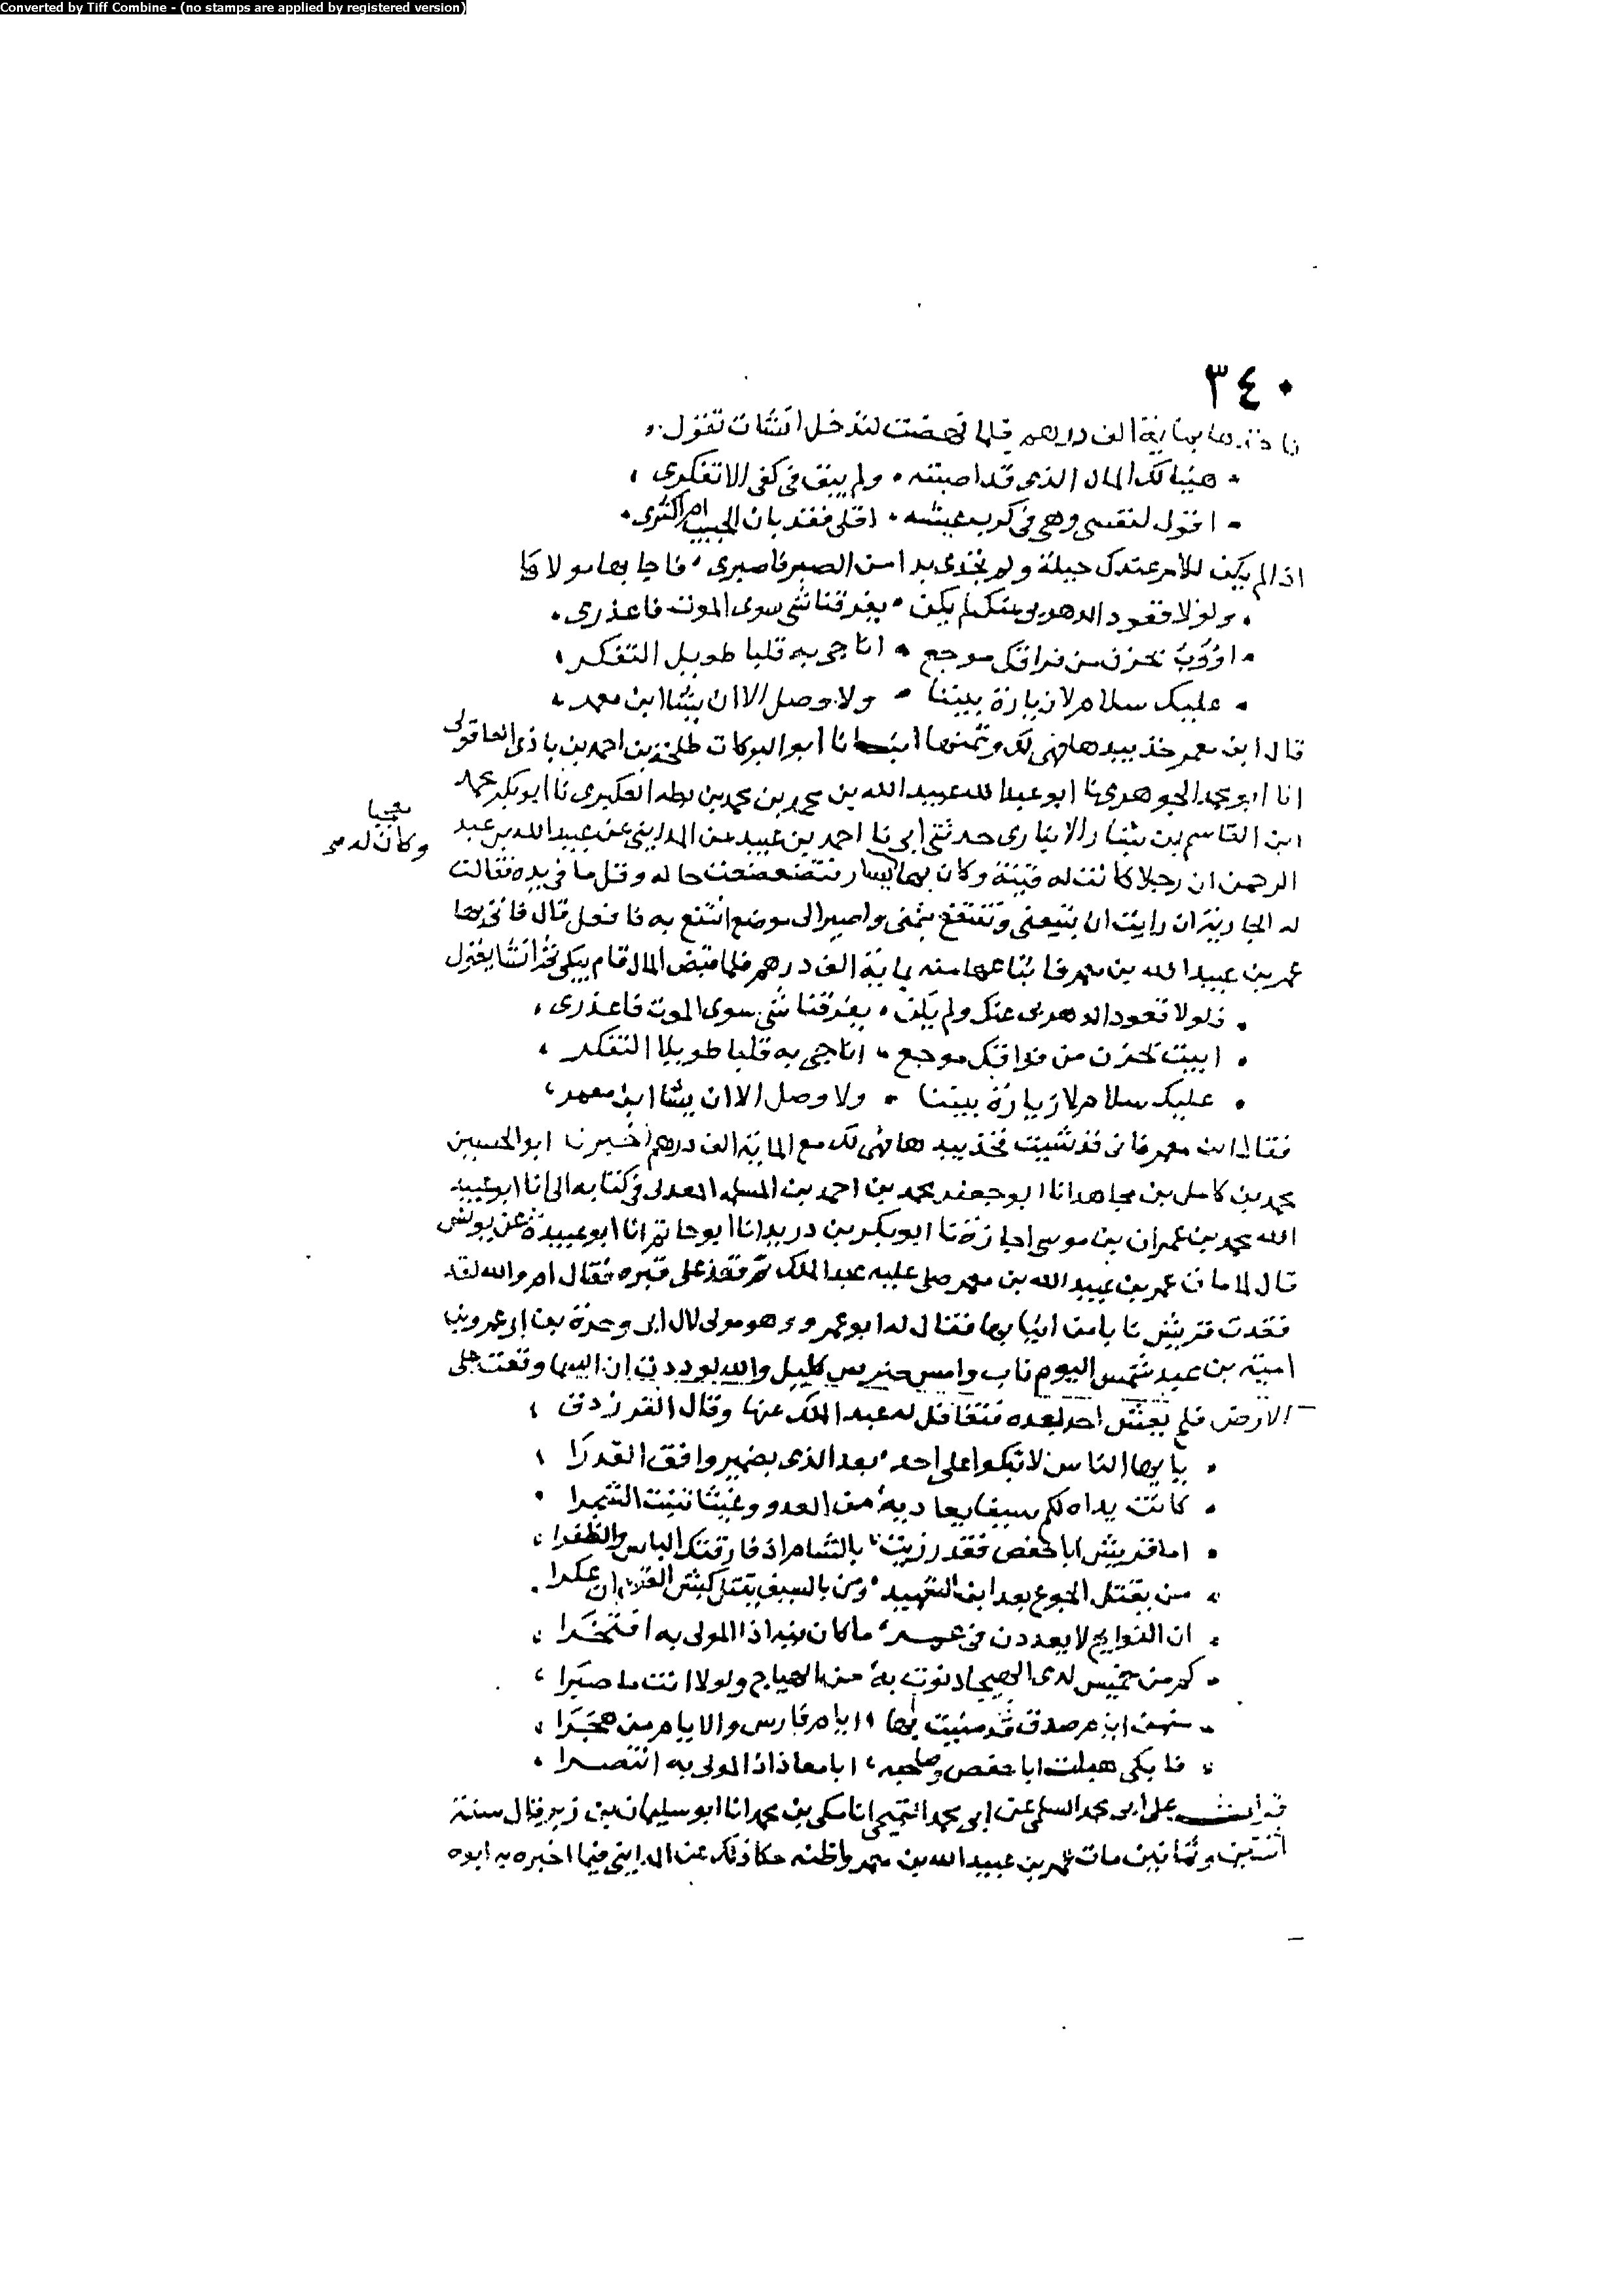 Converted by Tiff Combine - (no stamps are applied by registered version)
٣٤٠
بماية الف درهم فلما نهضت لتدخل انشات تقول
هنيا لك المال الذى قد اصبته ولم يبق فى كفى الا تفكرى
اقول لنفسى وهى فى كرب عيشه اقلى فقد بان الحبيب ام اكثرى
اذا لم يكن للامر عندك حيلة ولم تجدى بدا من الصبر فاصبرى فاجابها مولاها
ولولا قعود الدهر بى عنك لم يكن يفرقنا شى سوى الموت فاعذرى
اؤوب بحزن من فراقك موجع اناجى به قلبا طويل التفكر
عليك سلام لا زيارة بيننا ولا وصل الا ان يشا ابن معمر
قال ابن معمر خذ بيدها فهى لك وثمنها انبانا ابو البركات طلحة بن احمد بن باذى العاقولى
انا ابو محمد الجوهرى نا ابو عبد الله عبيد الله بن محمد بن محمد بن بطه العكبرى نا ابو بكر محمد
ابن القاسم بن بشار الانبارى حدثنى ابى نا احمد بن عبيد عن المداينى عن عبيد الله بن عبد
وكان له
الرحمن ان رجلا كانت له قينة وكان بها يسار فتضعضعت حاله وقل ما فى يده فقالت
له الجارية ان رايت ان تبيعنى وتنتفع بثمنى واصير الى موضع انتفع به فافعل قال فاتى بها
عمر بن عبيد الله بن معمر فابتاعها منه بماية الف درهم فلما قبض المال قام يبكى ثم انشا يقول
فلولا قعود الدهر بى عنك ولم يكن يفرقنا شى سوى الموت فاعذرى
ابيت بحزن من فراقك موجع اناجى به قلبا طويلا التفكر
عليك سلام لا زيارة بيننا ولا وصل الا ان يشا ابن معمر
فقال ابن معمر فانى قد شيت فخذ بيدها فهى لك مع الماية الف درهم اخبرنا ابو الحسين
محمد بن كامل بن مجاهد انا ابو جعفر محمد بن احمد بن المسلمة المعدل فى كتابه الى انا ابو عبيد
الله محمد بن عمران بن موسى اجازة نا ابو بكر بن دريد انا ابو حاتم انا ابو عبيدة عن يونس
قال لما مات عمر بن عبيد الله بن معمر صلى عليه عبد الملك ثم قعد على قبره فقال ام والله لقد
فقدت قريش نابا من انيابها فقال له ابو عمرو وهو مولى لال ابى وجزة بن ابى عمرو بن
امية بن عبد شمس اليوم ناب وامس كليل والله لوددت ان السما وقعت على
الارض فلم يعش احد بعده فتغافل له عبد الملك عنها وقال الفرزدق
يا ايها الناس لا تبكوا على احد بعد الذى بضمير وافق القدرا
كانت يداه لكم سيفا يعاد به من العدو وغيثا ينبت الشجرا
اما قريش ابا حفص فقد رزيت بالشام اذ فارقتك الباس والظفرا
من يقتل الجوع بعد ابن الشهيد ومن بالسيف يقتل كبش القوم ان عكرا
ان النوايح لا يعددن فى عمر ما كان فيه اذا المولى به افتخرا
كم من خميس لدى الهيجا دنوت به من الهياج ولولا انت ما صبرا
منهن ايام صدق قد منيت بها ايام فارس والايام من هجرا
فابكى هبلت ابا حفص وصاحبه ابا معاذ اذا المولى به انتصرا
قرات على ابى محمد السلمى عن ابى محمد التميمى انا مكى بن محمد انا ابو سليمان بن زبر قال سنة
اثنتين وثمانين مات عمر بن عبيد الله بن معمر واظنه حكا ذلك عن المداينى فيما اخبره به ابوه